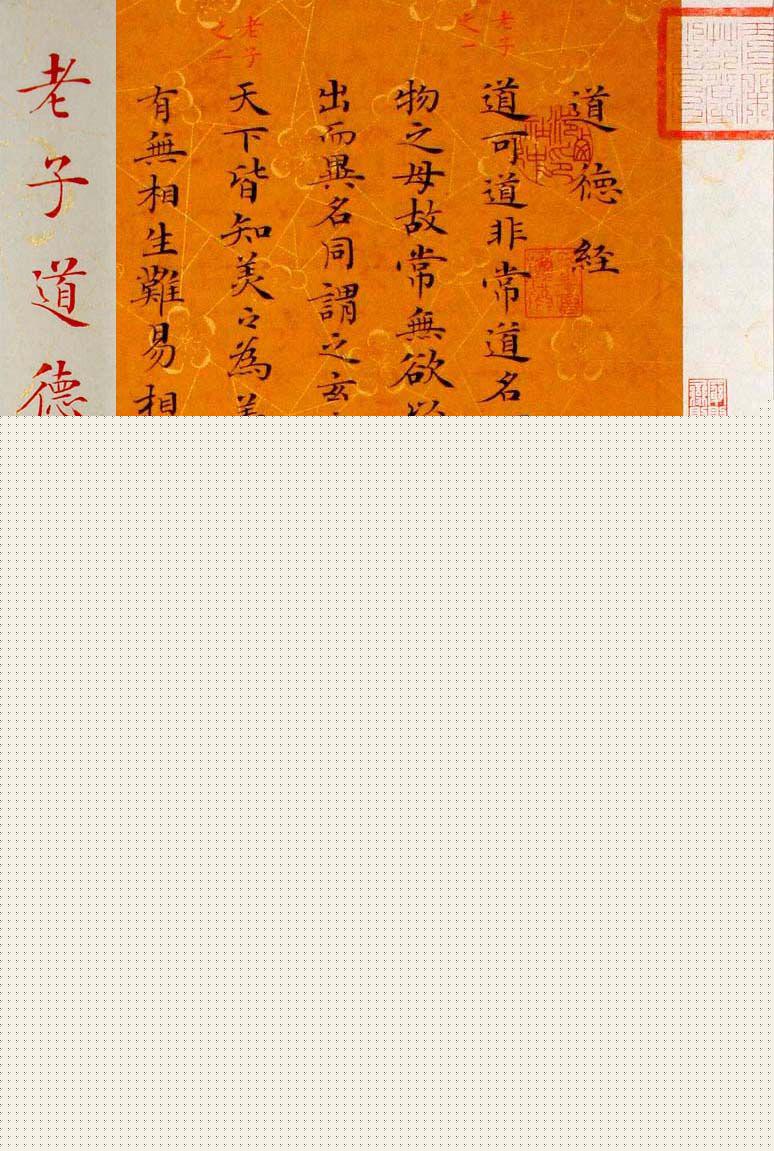 道德経
道可道非常道名
物之母故常無欲以
出而異名同謂之玄
天下皆知美〻為美
有無相生難易相
老子
之一
老子
之二
老子道德